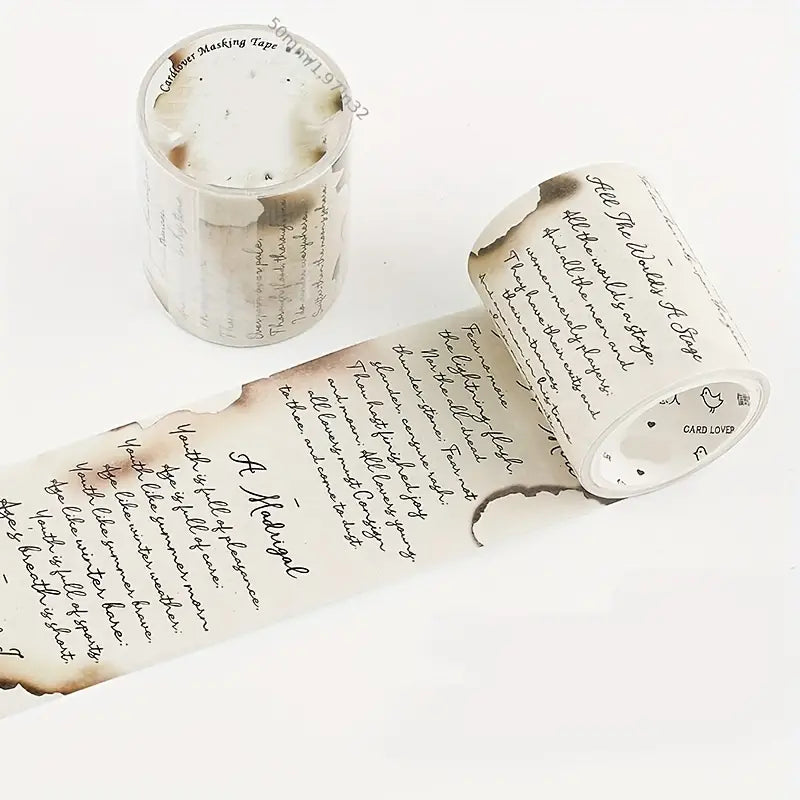 Cardlover Masking Tape
50mm/1.97in
Over park over pale,
Thorough flood, thorough fire
I do wander everywhere,
Swifter than the moon's sphere
All The World's A Stage
All the world's a stage,
And all the men and
women merely players;
They have their exits and
their entrances,
CARD LOVER
Fear no more
the lightning-flash,
Nor the all-dread
thunder-stone; Fear not
slander, censure rash;
Thou hast finished joy
and moan; All lovers young,
all lovers must Consign
to thee, and come to dust.
A Madrigal
Youth is full of pleasance,
Age is full of care;
Youth like summer morn,
Age like winter weather;
Youth like summer brave,
Age like winter bare;
Youth is full of sports,
Age's breath is short,